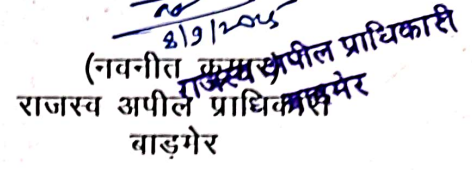 8/9/2025
(नवनीत कुमार)
राजस्व अपील प्राधिकारी
बाड़मेर
राजस्व अपील प्राधिकारी
बाड़मेर